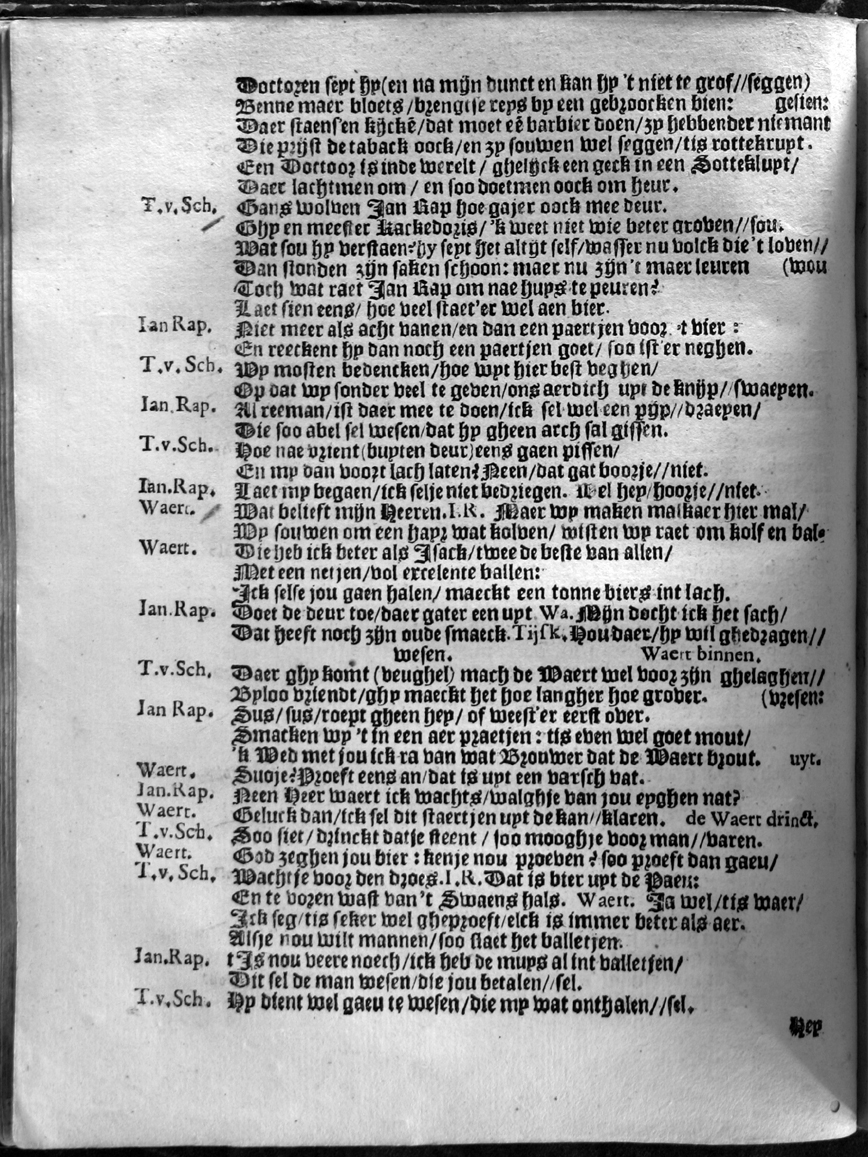 Doctoren seyt hy (en na mijn dunct en kan hy 't niet te grof//seggen)
Benne maer bloets/brengtse reys by een gebroocken bien: gesien:
Daer staensen kijckē/dat moet eē barbier doen/zy hebbender niemant
Die prijst de taback oock/en zy souwen wel seggen/tis rottekruyt.
Een Doctoor is inde werelt/ghelijck een geck in een Sottekluyt/
Daer lachtmen om/en soo doetmen oock om heur.
T.v.Sch. Gans wolven Jan Rap hoe gajer oock mee deur.
Ghy en meester Kackedoris/'k weet niet wie beter groven//sou.
Wat sou hy verstaen? hy seyt het altijt self/wasser nu volck die't loven//
Dan stonden zijn saken schoon: maer nu zijn't maer leuren (wou
Toch wat raet Jan Rap om nae huys te peuren?
Laet sien eens/hoe veel staet'er wel aen bier.
Ian Rap. Niet meer als acht vanen/en dan een paertjen voor 't vier:
En reeckent hy dan noch een paertjen goet/soo ist'er neghen.
T.v.Sch. Wy mosten bedencken/hoe wyt hier best veghen/
Op dat wy sonder veel te geven/ons aerdich uyt de knijp//swaepen.
Jan.Rap. Al reeman/ist daer mee te doen/ick sel wel een pijp//draepen/
Die soo abel sel wesen/dat hy gheen arch sal gissen.
T.v.Sch. Hoe nae vrient (buyten deur) eens gaen pissen/
En my dan voort lach laten? Neen/dat gat boorje//niet.
Ian.Rap. Laet my begaen/ick selje niet bedriegen. Wel hey/hoorje//niet.
Waert. Wat belieft mijn Heeren. I.R. Maer wy maken malkaer hier mal/
Wy souwen om een hapz wat kolven/wisten wy raet om kolf en bal.
Waert. Die heb ick beter als Isack/twee de beste van allen/
Met een netjen/vol excelente ballen:
Ick selse jou gaen halen/maeckt een tonne biers int lach.
Jan.Rap. Doet de deur toe/daer gater een uyt Wa. Mijn docht ick het sach/
Dat heeft noch zijn oude smaeck. Tijsk. Hou daer/hy wil ghedragen//
wesen. Waert binnen.
T.v.Sch. Daer ghy komt (veughel) mach de Waert wel voor zijn ghelaghen//
Byloo vriendt/ghy maeckt het hoe langher hoe grover. (vresen:
Jan Rap. Sus/sus/roept gheen hey/of weest'er eerst over.
Smacken wy 't in een aer praetjen: tis even wel goet mout/
'k Wed met jou ick ra van wat Brouwer dat de Waert brout. uyt.
Waert. Suoje? Proeft eens an/dat is uyt een varsch vat.
Jan.Rap. Neen Heer waert ick wachts/walghje van jou eyghen nat?
Waert. Geluck dan/ick sel dit staertjen uyt de kan//klaren. de Waert drinct.
T.v.Sch. Soo siet/drinckt datje steent/soo mooghje voor man//varen.
Waert. God zeghen jou bier: kenje nou proeven? soo proeft dan gaeu/
T.v.Sch. Wachtje voor den droes. I.R. Dat is bier uyt de Paeu:
En te voren wast van't Swaens hals. Waert. Ja wel/tis waer/
Ick seg/tis seker wel gheproeft/elck is immer beter als aer.
Alsje nou wilt mannen/soo slaet het balletjen.
Jan.Rap. t'Is nou veere noech/ick heb de muys al int valletjen/
Dit sel de man wesen/die jou betalen//sel.
T.v.Sch. Hy dient wel gaeu te wesen/die my wat onthalen//sel.
Hey